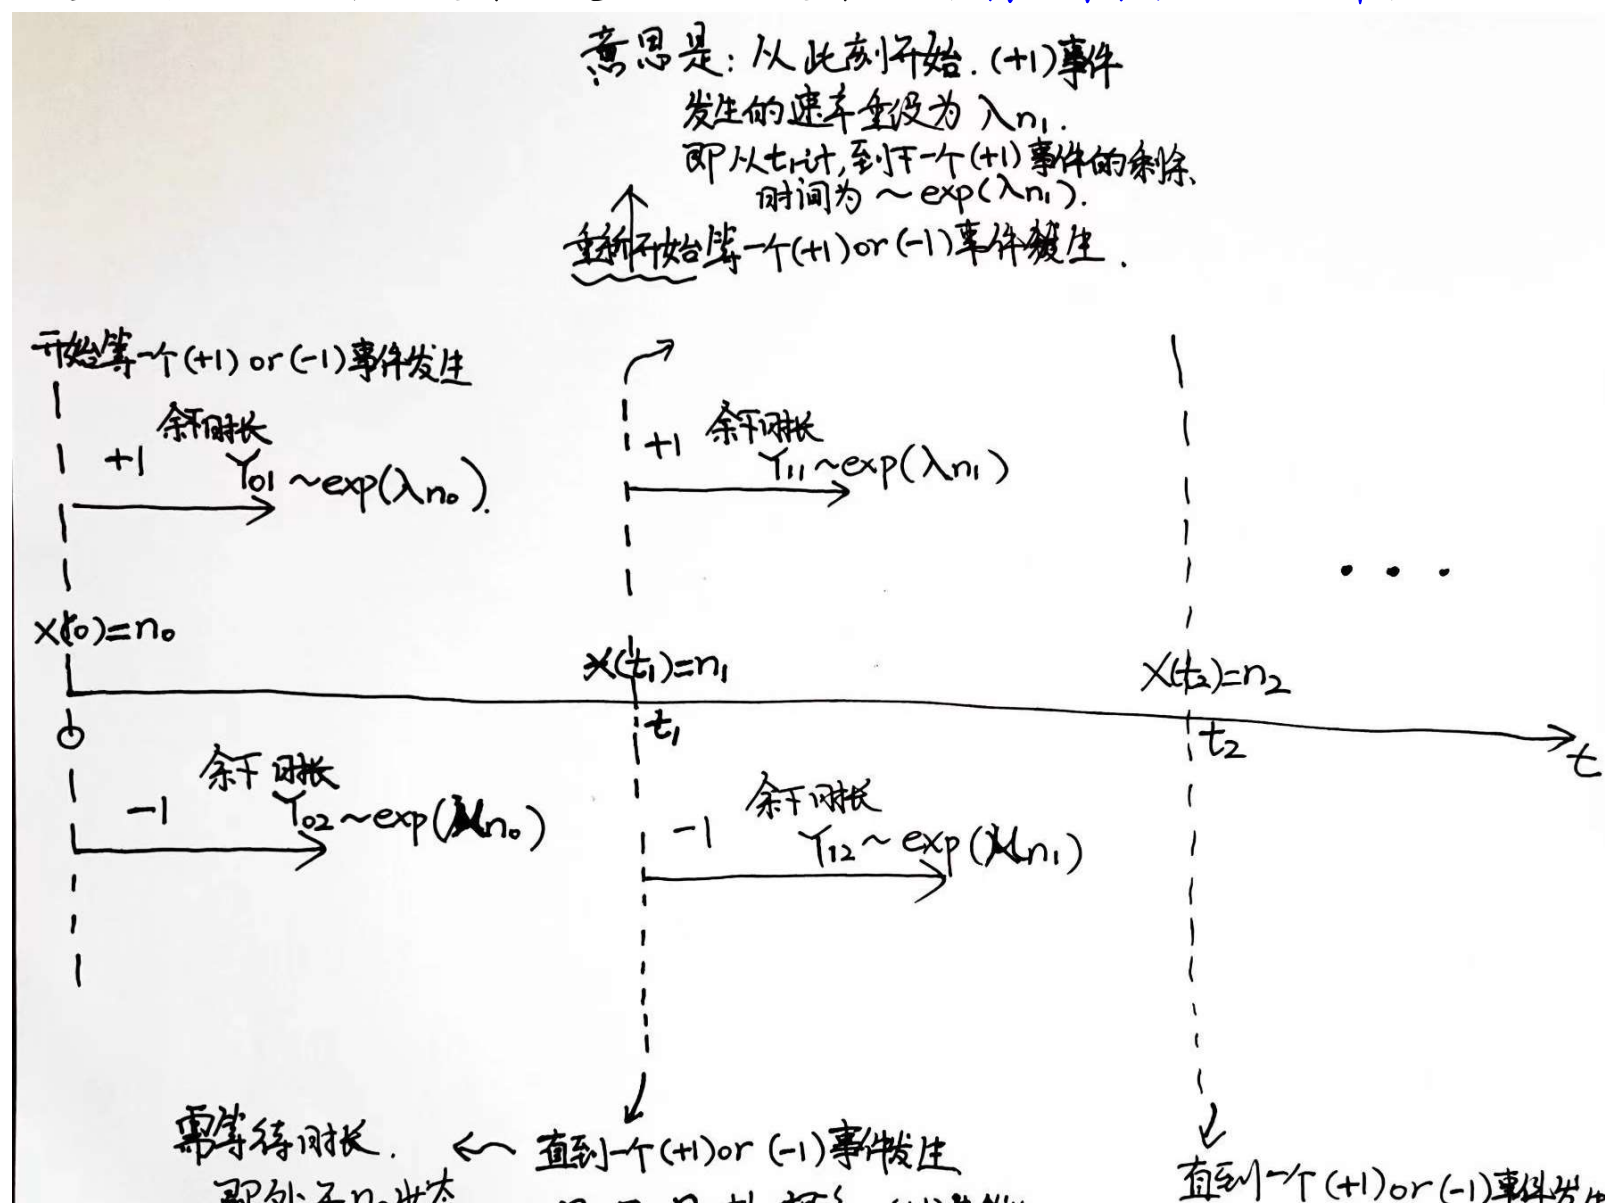 意思是: 从此刻开始. (+1)事件
发生的速率重设为 λn₁.
即从t₁计,到下一个(+1)事件的剩余
时间为 ~exp(λn₁).
重新开始等一个(+1)or(-1)事件发生.
开始等一个(+1) or (-1)事件发生
余下时长
+1 Y₀₁~exp(λn₀).
余下时长
+1 Y₁₁~exp(λn₁)
...
X(t₀)=n₀
X(t₁)=n₁
X(t₂)=n₂
0
t₁
t₂
t
余下时长
-1 Y₀₂~exp(μn₀)
余下时长
-1 Y₁₂~exp(μn₁)
需等待时长. ← 直到一个(+1)or (-1)事件发生
即处于n₀状态
直到一个(+1)or(-1)事件发生